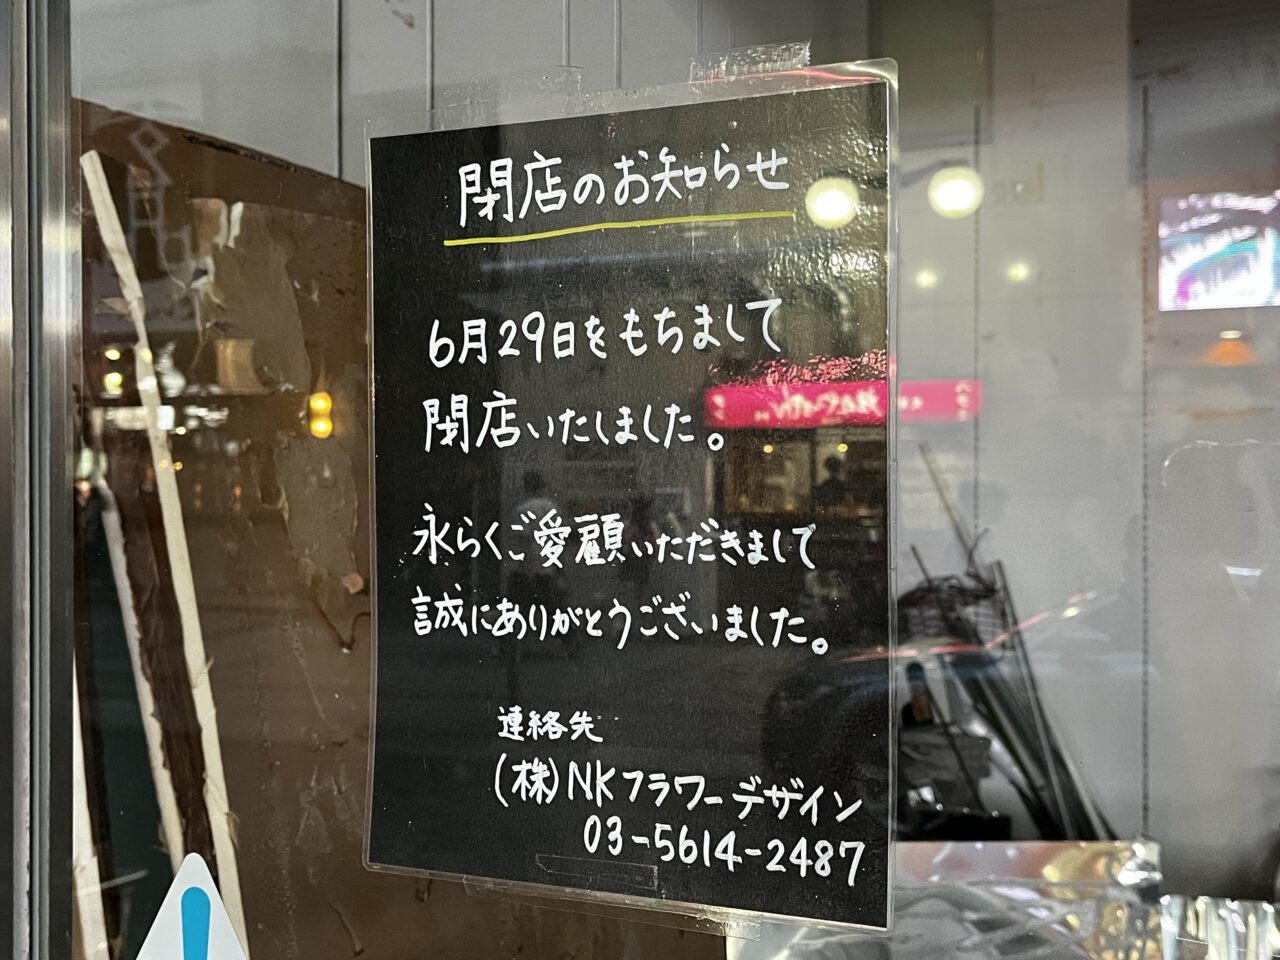 閉店のお知らせ
6月29日をもちまして
閉店いたしました。
永らくご愛顧いただきまして
誠にありがとうございました。
連絡先
(株)NKフラワーデザイン
03-5614-2487